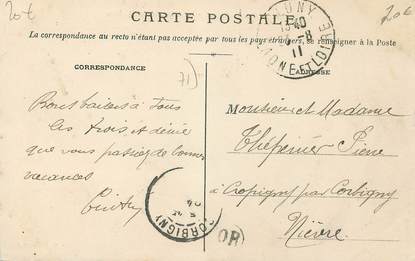 20€
20€
CARTE POSTALE
La correspondance au recto n'étant pas acceptée par tous les pays étrangers, se renseigner à la Poste
CLUNY
10 40
-8
11
SAONE-ET-LOIRE
CORRESPONDANCE
71)
ADRESSE
Bons baisers à tous
les trois et désire
que vous passiez de bonnes
vacances
Monsieur et Madame
Pierre
à Cropigny par Corbigny
Nièvre
CORBIGNY
OR